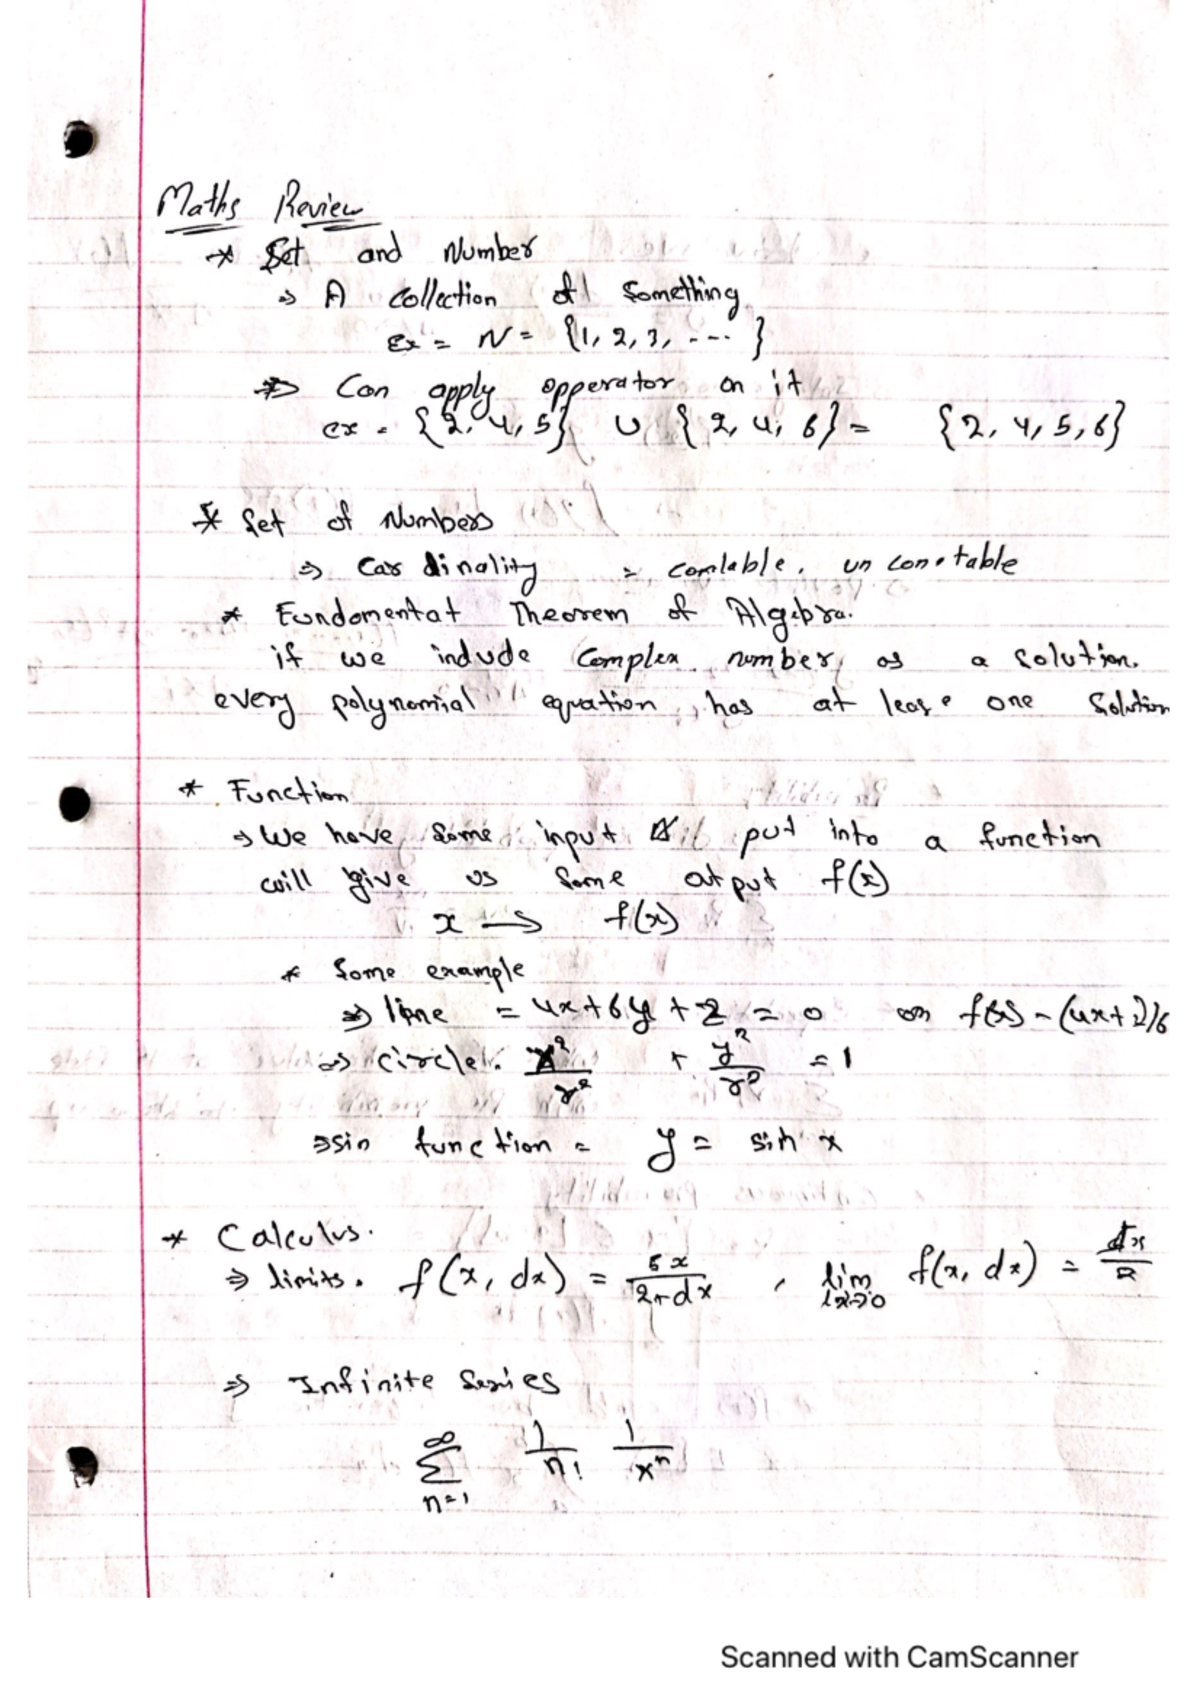 Maths Review
* Set and Number
⇒ A collection of something
Ex = N = {1, 2, 3, ---- }
⇒ Can apply opperator on it
ex = {2, 4, 5} ∪ {2, 4, 6} = {2, 4, 5, 6}
* Set of Numbers
⇒ Cardinality =
* Fundomentat Theorem of Algebra.
if we indude Complex number as a solution.
every polynomial equation, has at least one Solution
* Function
⇒ We have some input put into a function
will give us some output f(x)
x → f(x)
* Some example
⇒ line = 4x + 6y + 2 = 0 or f(x) = (4x+2)/6
⇒ circle. x²/r² + y²/r² = 1
⇒ sin function = y = sin x
* Calculus.
⇒ limits. f(x, dx) = 5x/2+dx , lim f(x, dx) =
⇒ Infinite Series
∞
∑ 1/n! 1/xⁿ
n=1
Scanned with CamScanner